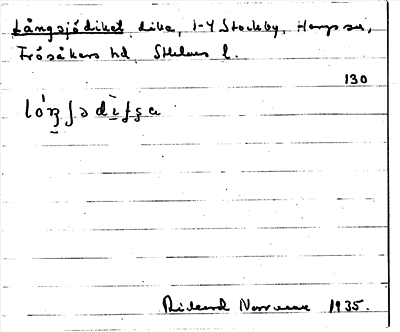 Långsjödiket, dike, 1-4 Stockby, Hargs sn,
Frösåkers hd, Sthlms l.
130
Rickard Norrman 1935.